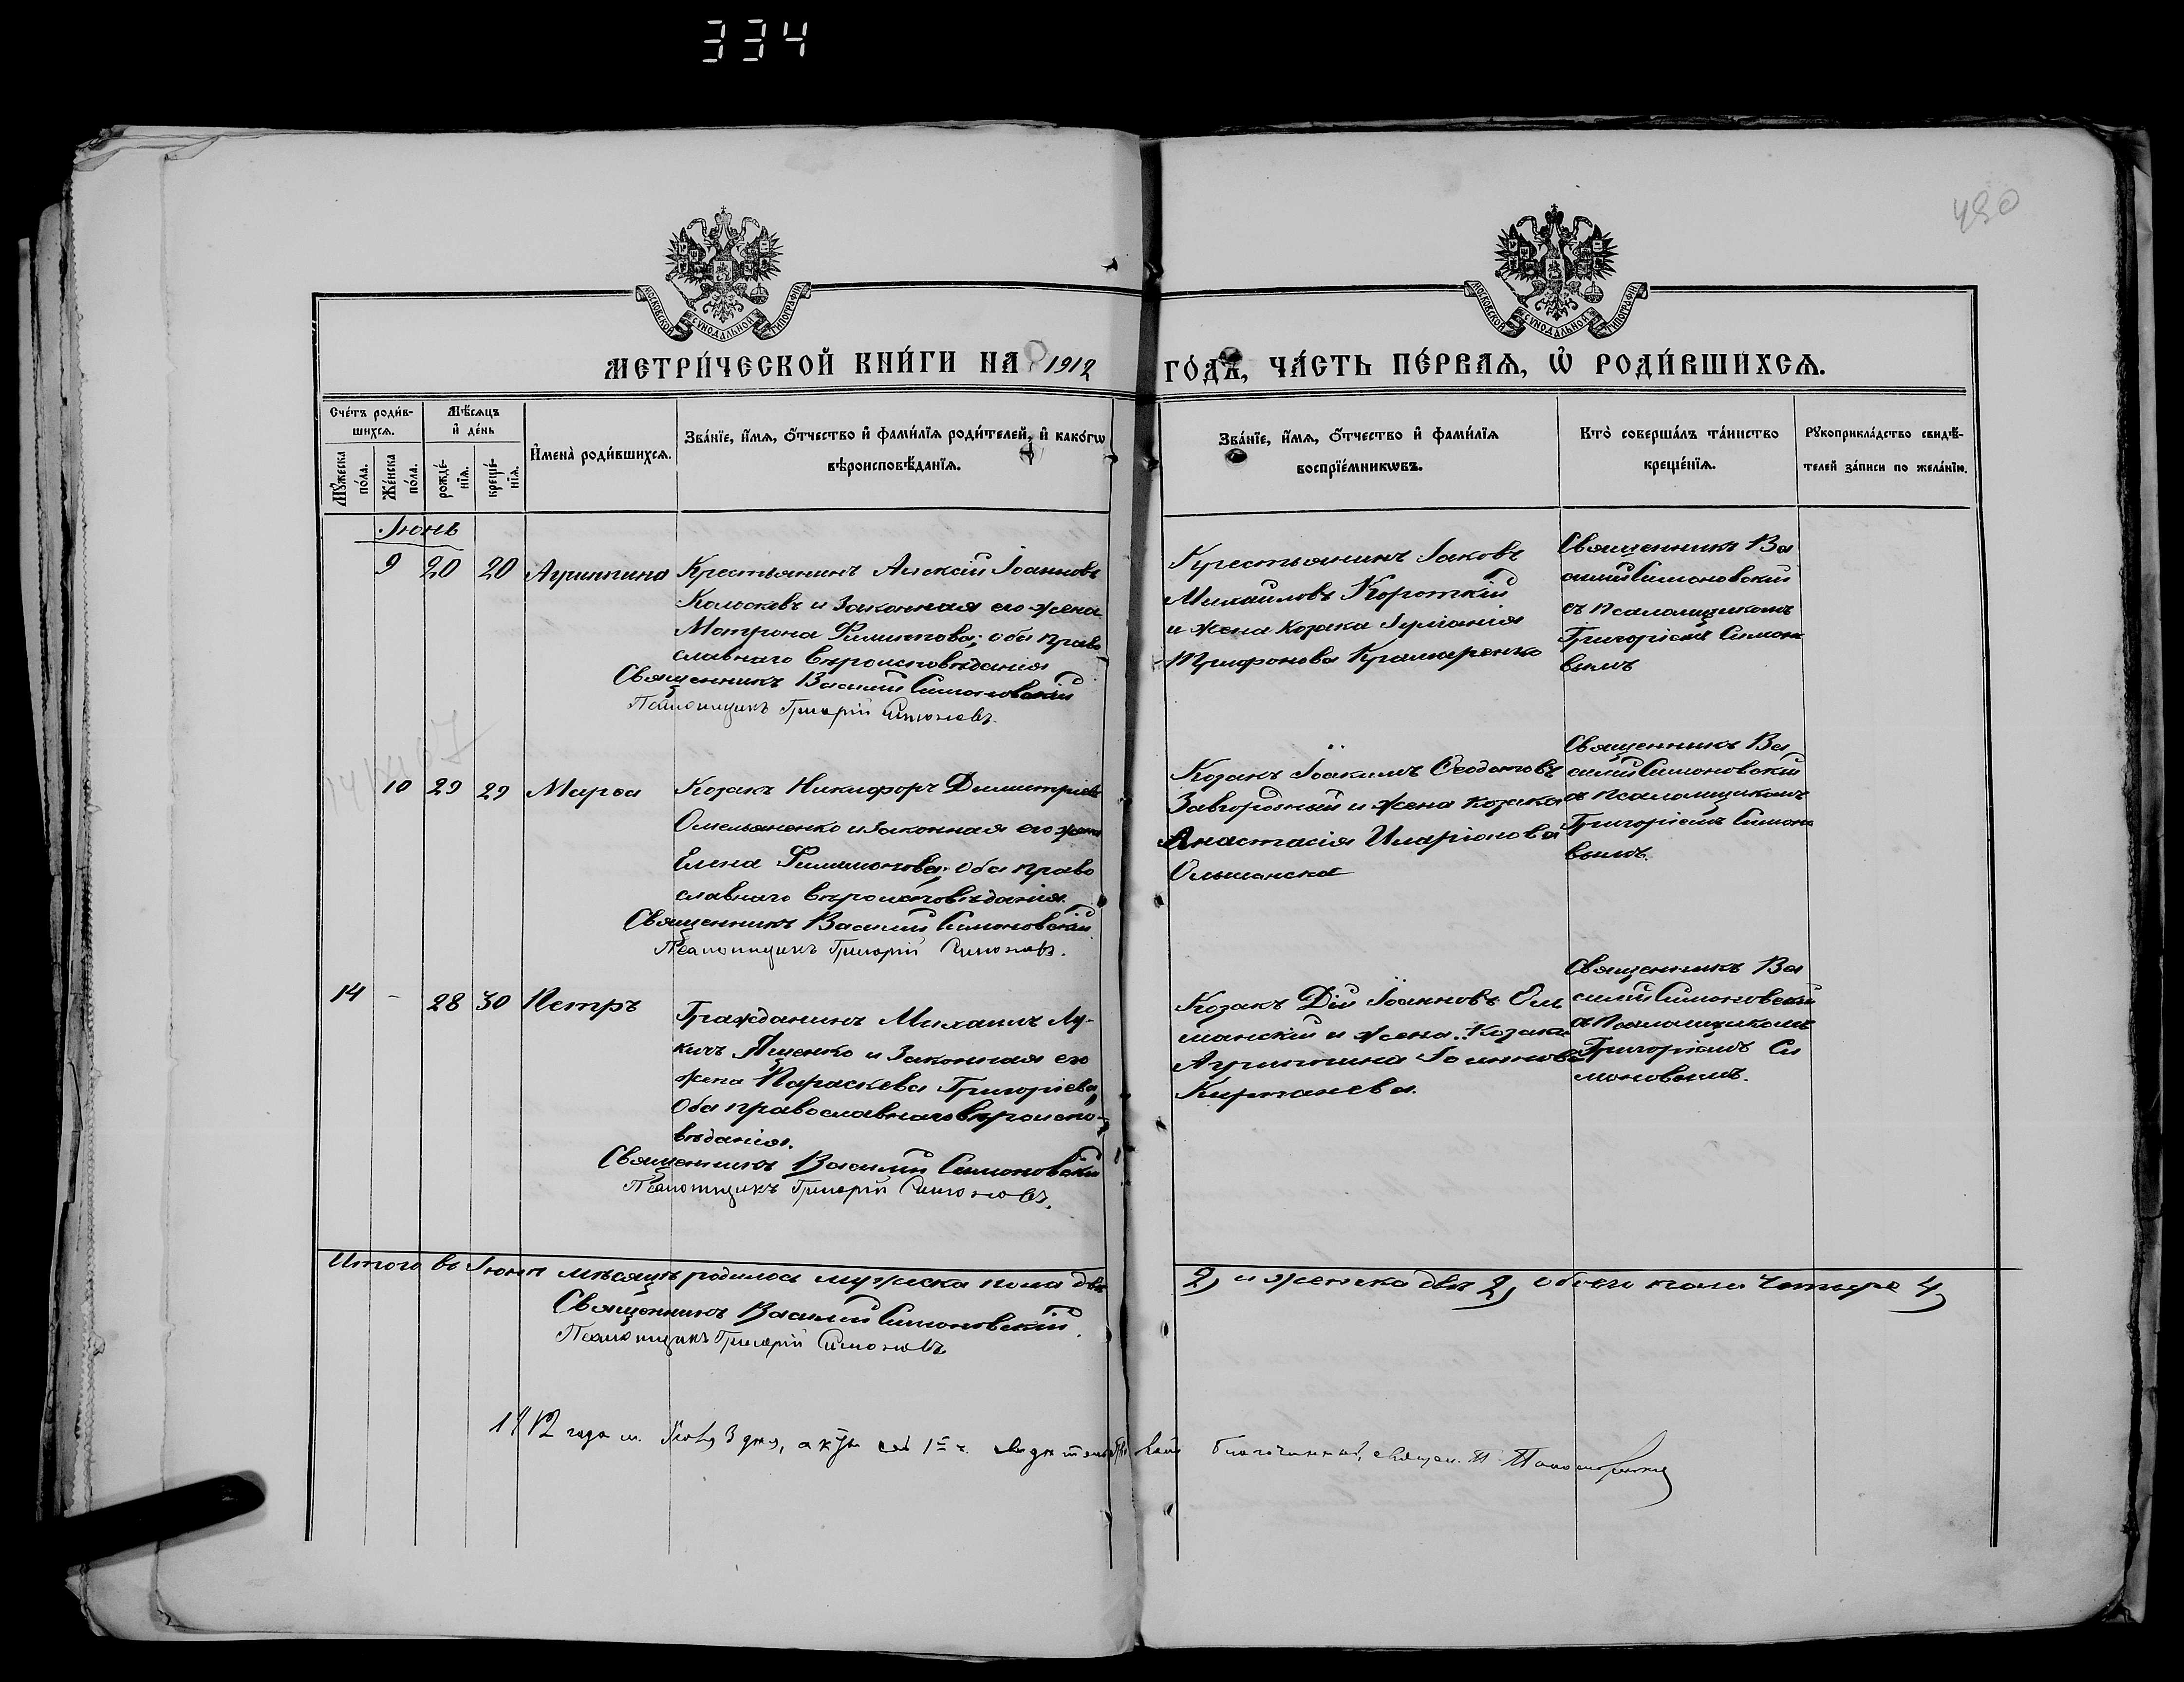 334
490
МОСКОВСКОЙ СУНОДАЛЬНОЙ ТИПОГРАФІИ
МОСКОВСКОЙ СУНОДАЛЬНОЙ ТИПОГРАФІИ
МЕТРИ́ЧЕСКОЙ КНИ́ГИ НА 1912 ГО́ДЪ, ЧА́СТЬ ПЕ́РВАѦ, Ѡ҆ РОДИ́ВШИХСѦ.
Сче́тъ роди́в-
шихсѧ.
Мꙋ́жеска
по́ла.
Же́нска
по́ла.
Мѣ́сѧцъ
и҆ де́нь
рожде́-
нїѧ.
креще́-
нїѧ.
И҆мена̀ роди́вшихсѧ.
Зва́нїе, и҆́мѧ, ѻ҆́тчество и҆ фами́лїѧ роди́телей, и҆ како́гѡ
вѣроисповѣ́данїѧ.
Зва́нїе, и҆́мѧ, ѻ҆́тчество и҆ фами́лїѧ
воспрїе́мникѡвъ.
Кто̀ соверша́лъ та́инство
креще́нїѧ.
Рꙋкоприкла́дство свидѣ́-
телей за́писи по жела́нїю.
Іюнь
9 20 20 Агриппина
Крестьянинъ Алексій Іоанновъ
Колосовъ и законная его жена
Матрона Филиппова; оба право
славнаго вѣроисповѣданія
Священникъ Василій Симоновскій
Псаломщикъ Григорій Симоновъ.
Крестьянинъ Іаковъ
Михаиловъ Короткій
и жена козака Іуліанія
Трифонова Крамаренко
Священникъ Ва
силій Симоновскій
съ псаломщикомъ
Григоріемъ Симоно
вымъ
10 29 29 Марѳа
Козакъ Никифоръ Димитріевъ
Омельяненко и законная его жена
Елена Филимонова; оба право
славнаго вѣроисповѣданія.
Священникъ Василій Симоновскій.
Псаломщикъ Григорій Симоновъ.
Козакъ Іоакимъ Ѳеодотовъ
Завгородный и жена козака
Анастасія Иларіонова
Ольшанска
Священникъ Ва
силій Симоновскій
съ псаломщикомъ
Григоріемъ Симоно
вымъ.
14 - 28 30 Петръ
Гражданинъ Михаилъ Лу-
кичъ Яценко и законная его
жена Параскева Григоріева,
оба православнаго вѣроиспо-
вѣданія.
Священникъ Василій Симоновскій
Псаломщикъ Григорій Симоновъ.
Козакъ Дій Іоанновъ Ол
шанскій и жена козака
Агриппина Іоаннова
Киртанева.
Священникъ Ва
силій Симоновскій
съ псаломщикомъ
Григоріемъ Си
моновымъ.
Итого въ Іюнѣ мѣсяцѣ родилось мужеска пола два 2, и женска двѣ 2, обоего пола четыре 4,
Священникъ Василій Симоновскій.
Псаломщикъ Григорій Симоновъ
1912 года м. 3 дня, благочинный, священ.